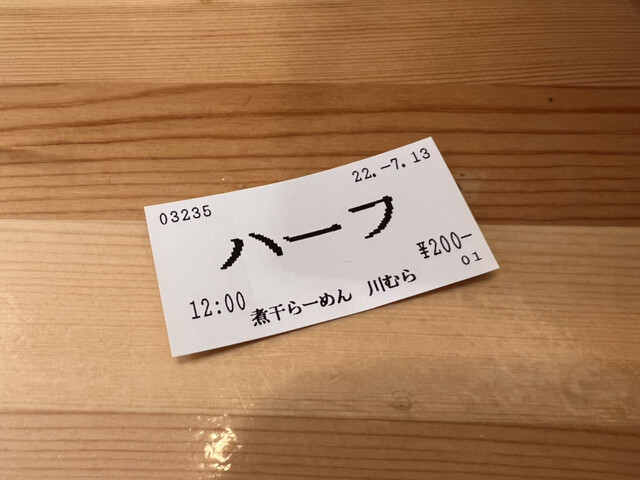 03235
22.-7.13
ハーフ
¥200-
12:00
01
煮干らーめん 川むら